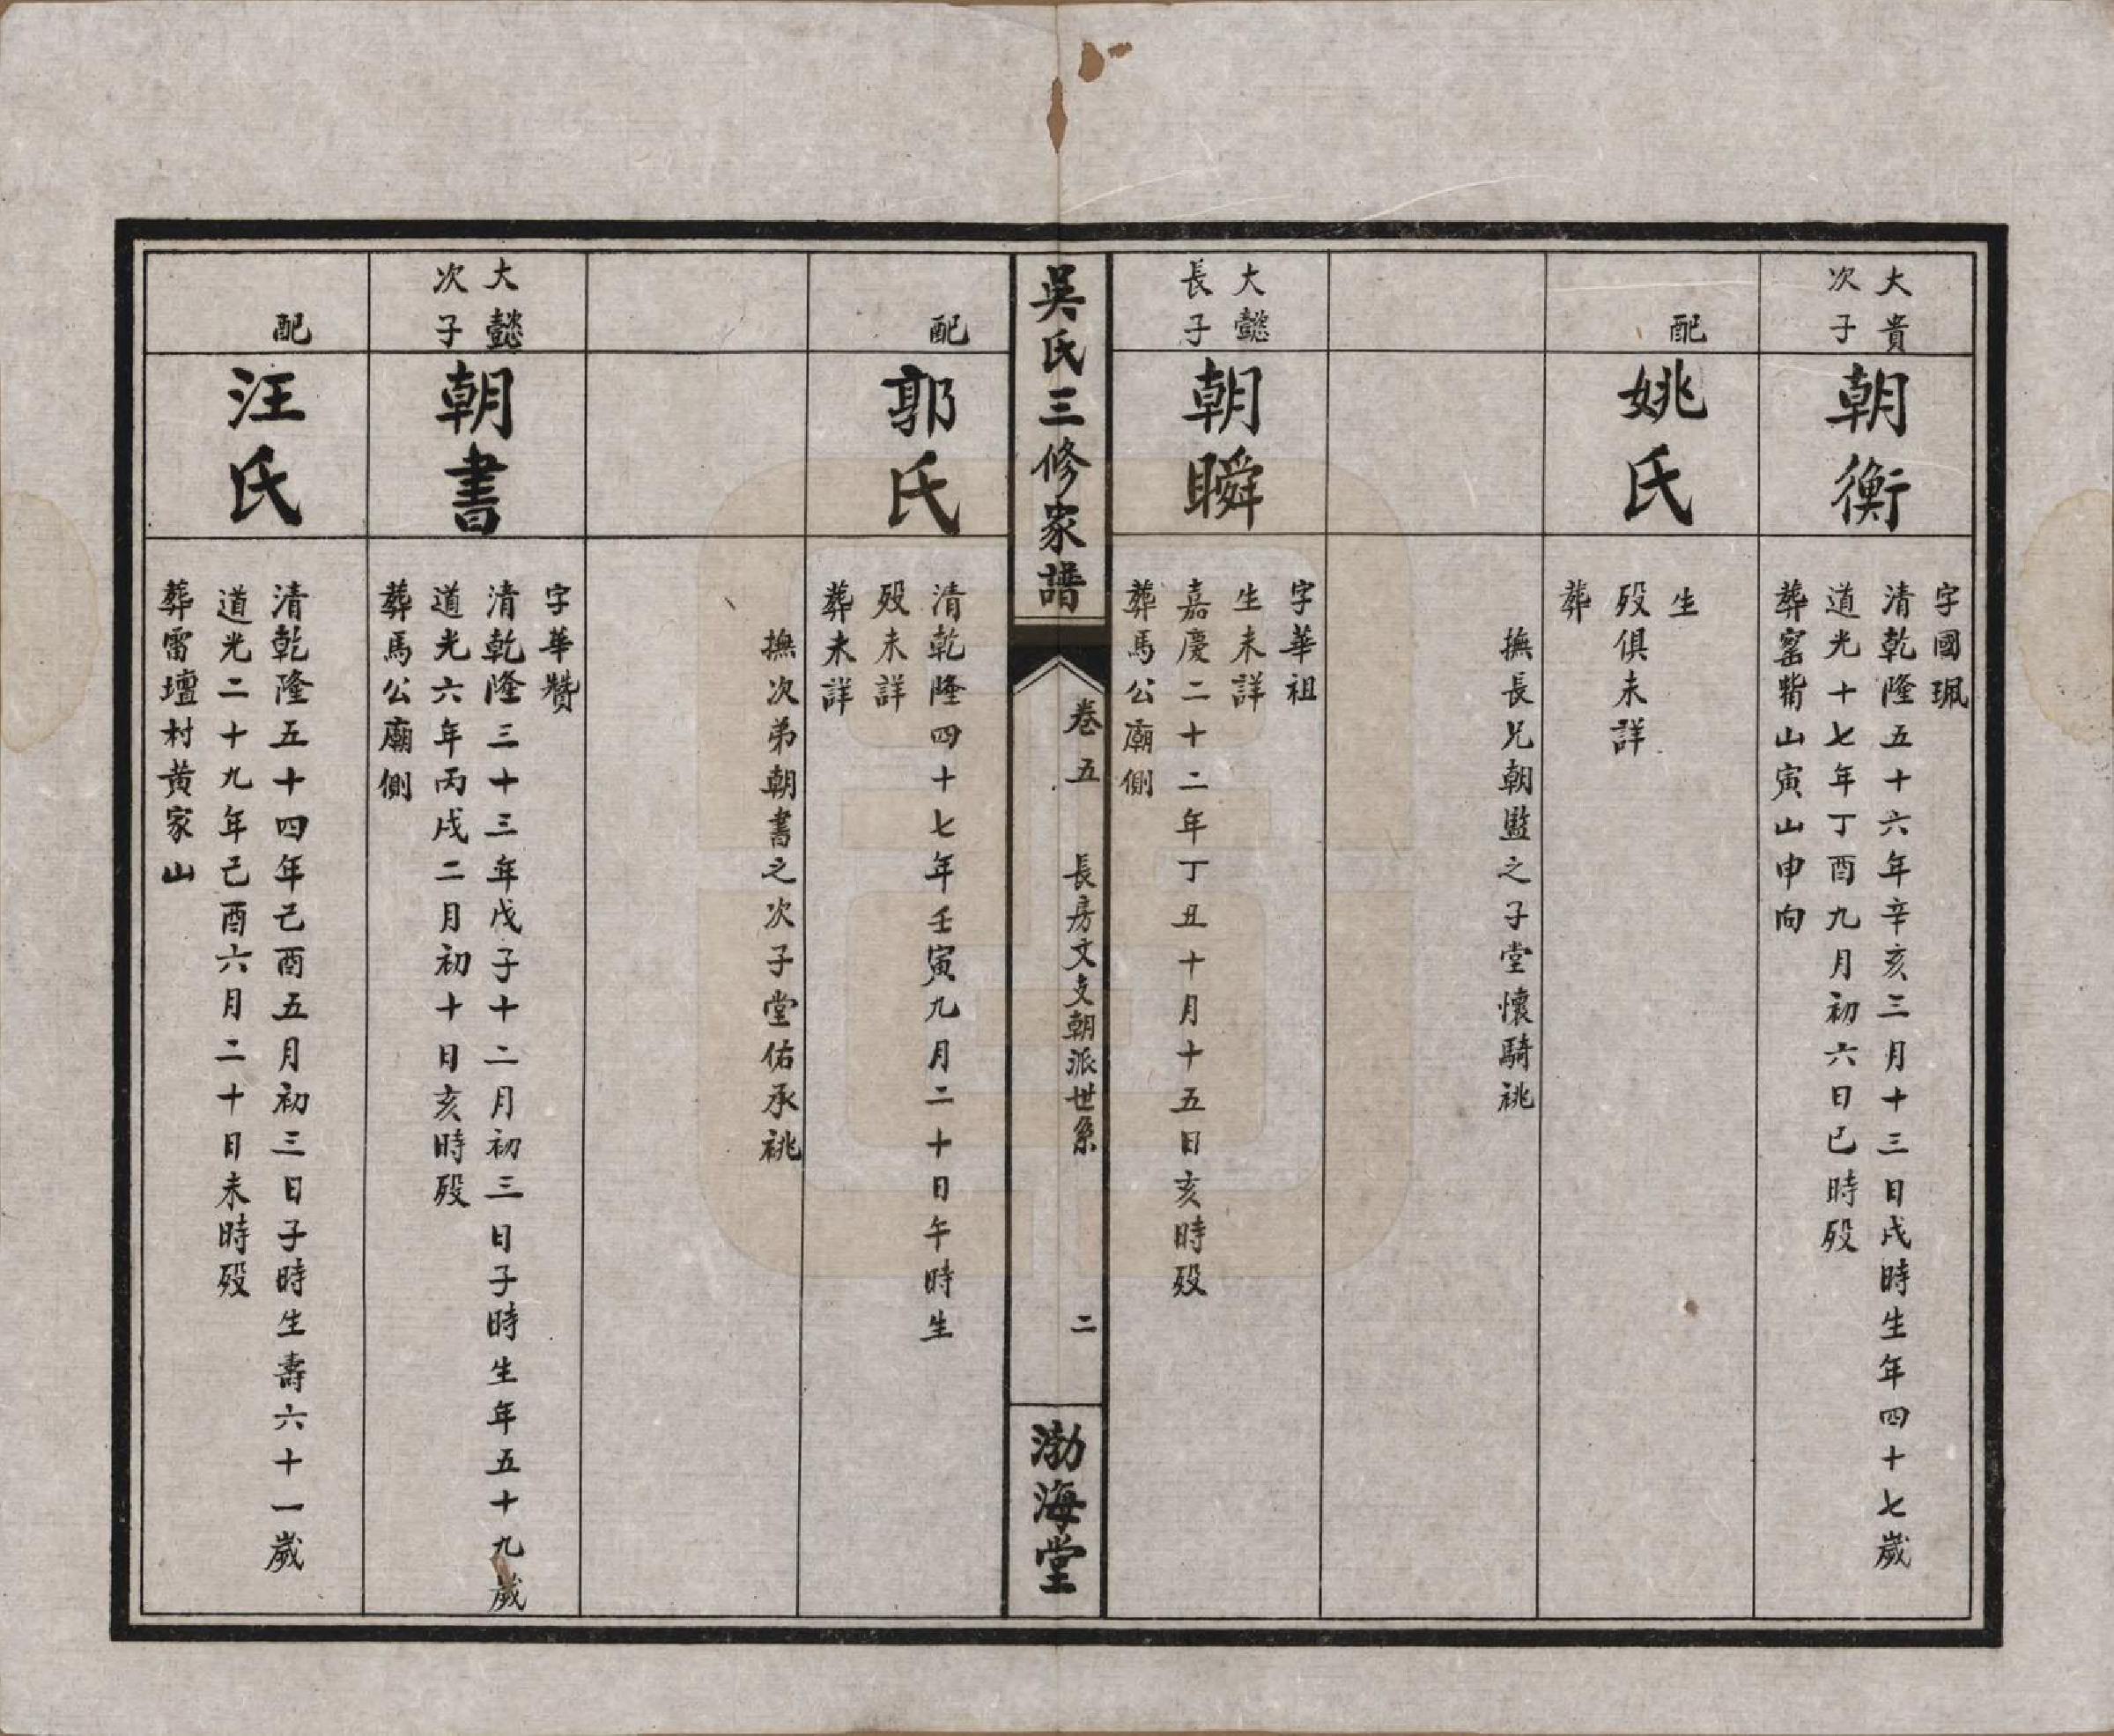 大貴
次子
朝衡
字國珮
清乾隆五十六年辛亥三月十三日戌時生年四十七歲
道光十七年丁酉九月初六日巳時殁
葬窰背山寅山申向
配
姚氏
生
殁俱未詳
葬
撫長兄朝監之子堂懷騎祧
大懿
長子
朝瞬
字華祖
生未詳
嘉慶二十二年丁丑十月十五日亥時殁
葬馬公廟側
吳氏三修家譜
卷五
長房文支朝派世系
二
渤海堂
配
郭氏
清乾隆四十七年壬寅九月二十日午時生
殁未詳
葬未詳
撫次弟朝書之次子堂佑承祧
大懿
次子
朝書
字華贊
清乾隆三十三年戊子十二月初三日子時生年五十九歲
道光六年丙戌二月初十日亥時殁
葬馬公廟側
配
汪氏
清乾隆五十四年己酉五月初三日子時生壽六十一歲
道光二十九年己酉六月二十日未時殁
葬雷壇村黃家山